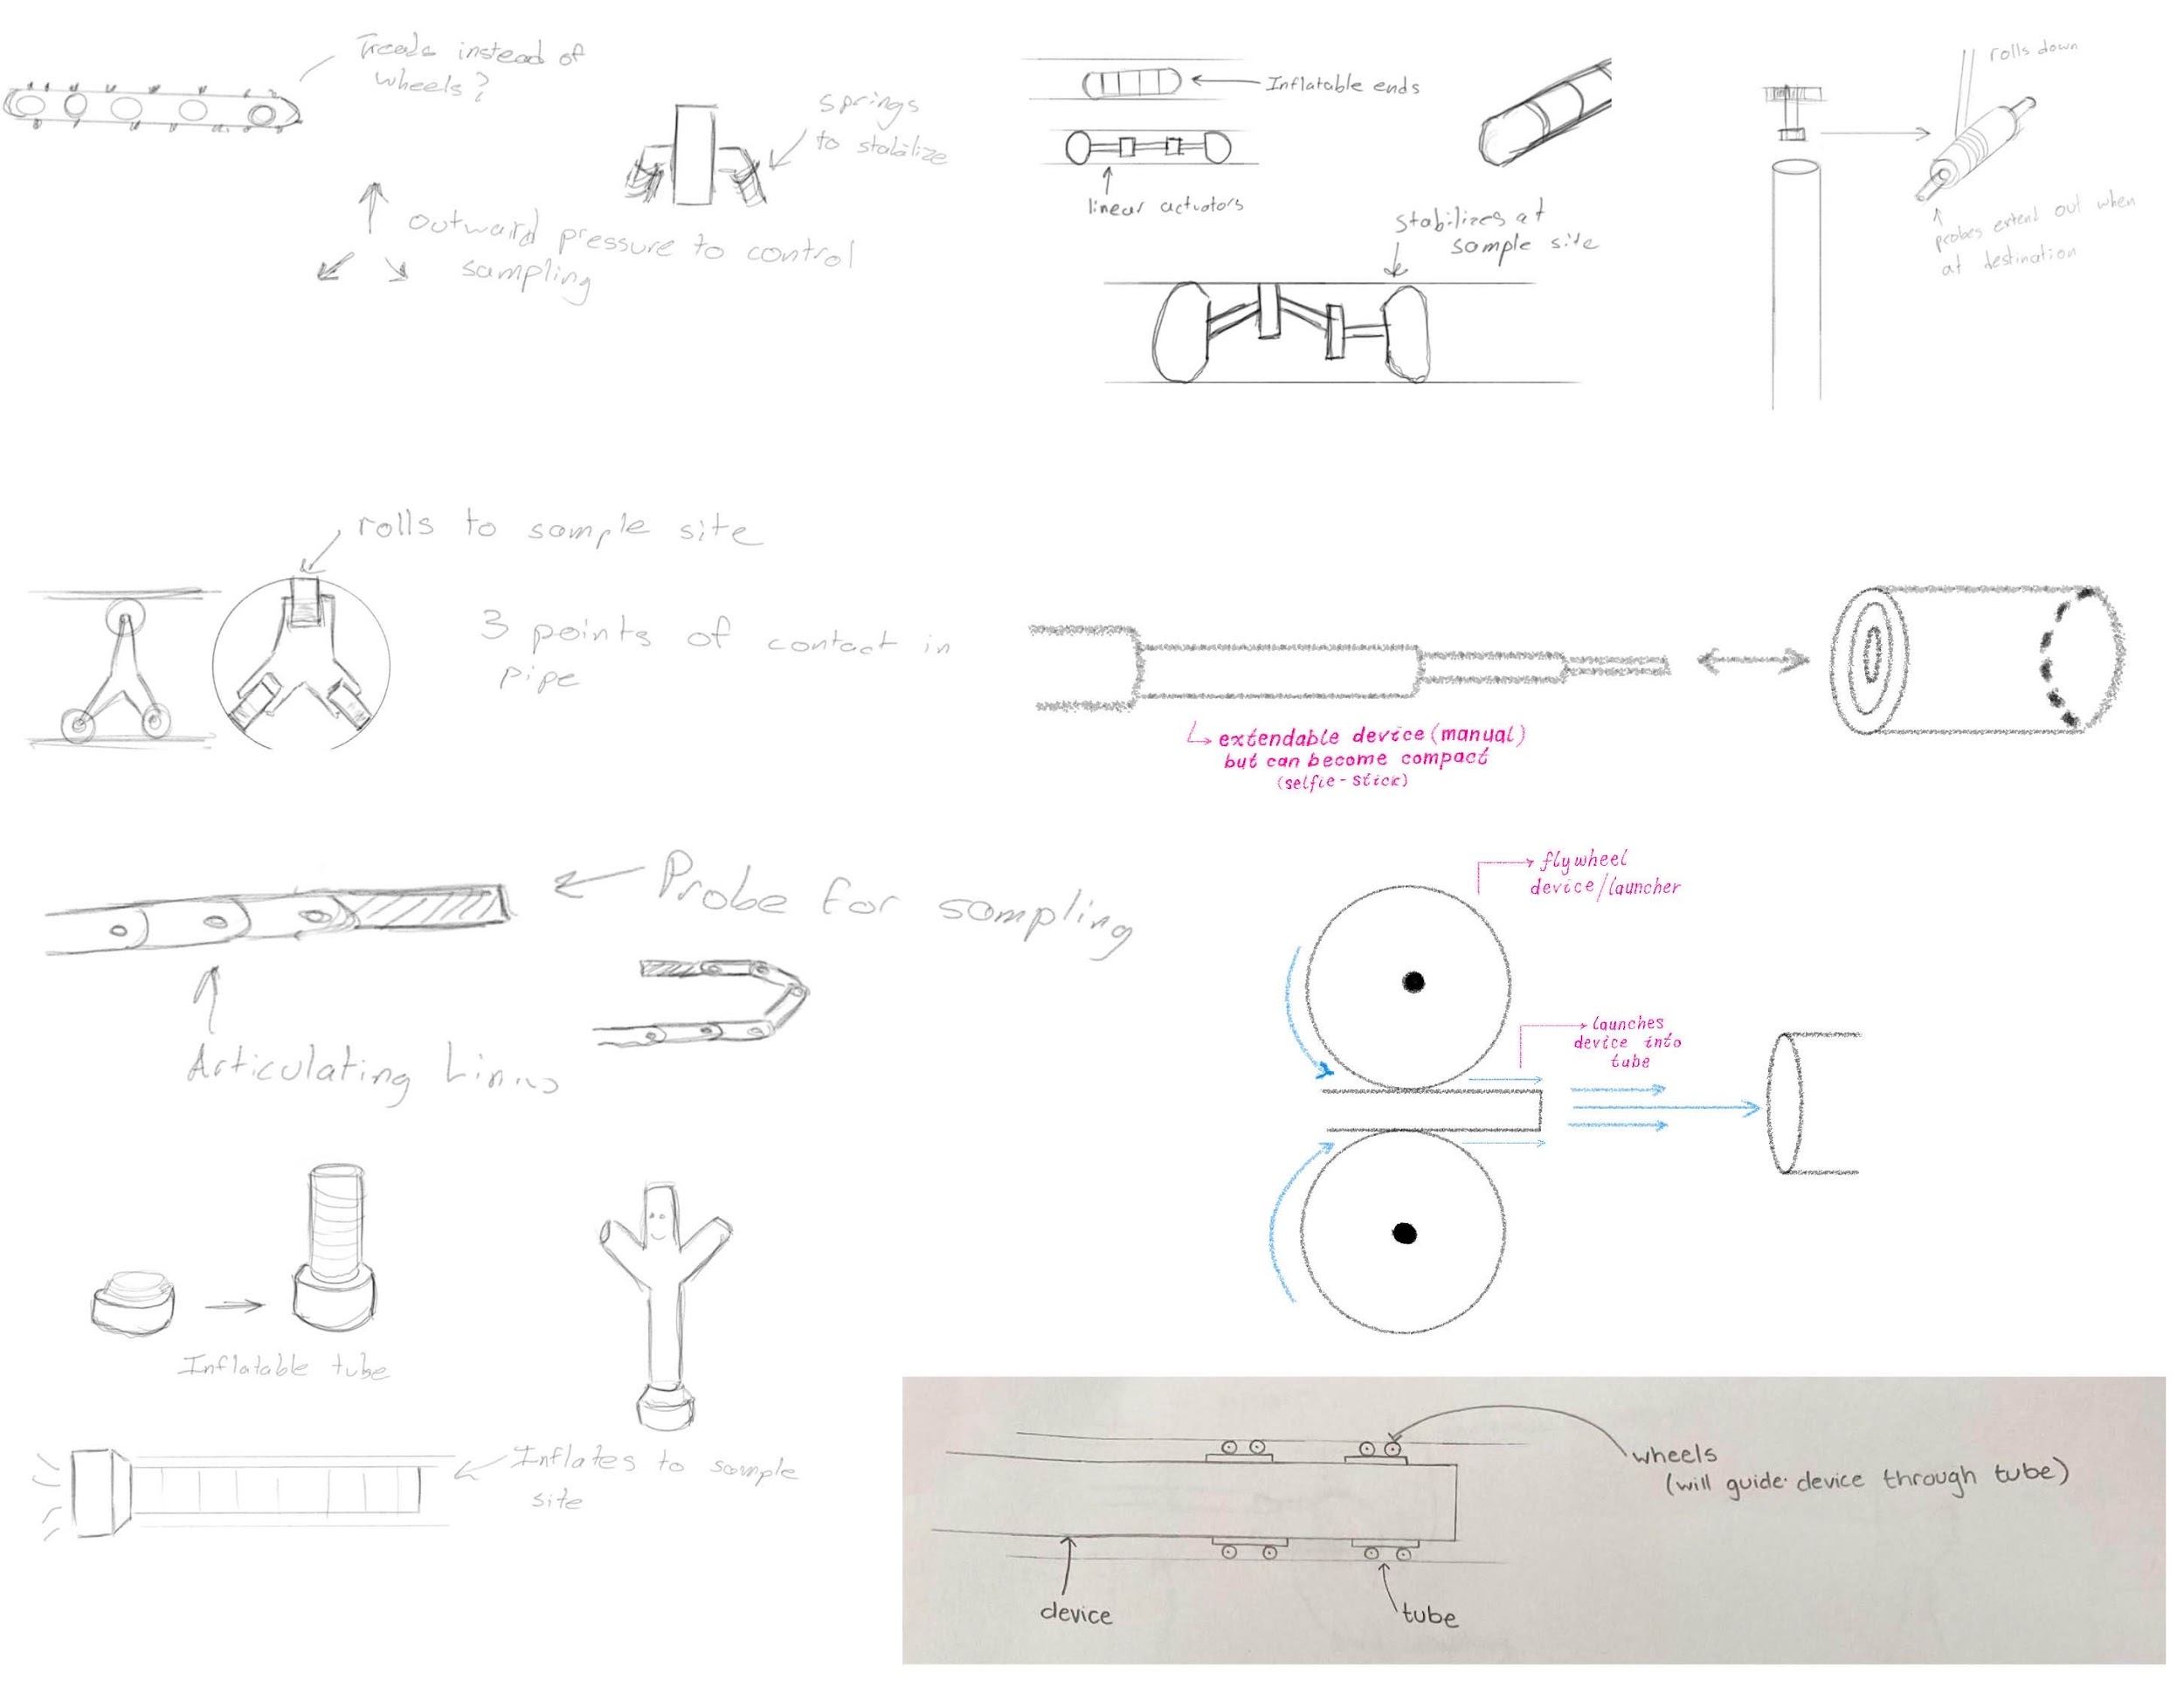 Treads instead of
wheels?
springs
to stabilize
outward pressure to control
sampling
Inflatable ends
linear actuators
stabilizes at
sample site
rolls down
probes extend out when
at destination
rolls to sample site
3 points of contact in
pipe
extendable device (manual)
but can become compact
(selfie-stick)
Probe for sampling
Articulating
flywheel
device/launcher
launches
device into
tube
Inflatable tube
Inflates to sample
site
wheels
(will guide device through tube)
device
tube